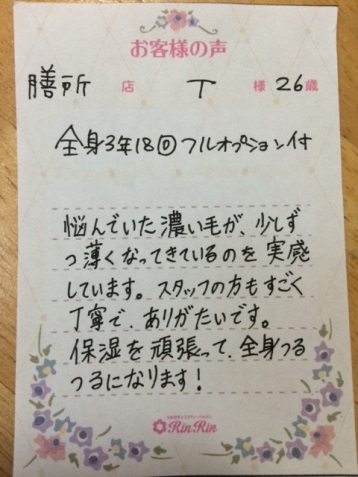 お客様の声
膳所 店 T 様 26歳
全身3年18回フルオプション付
悩んでいた濃い毛が、少しず
つ薄くなってきているのを実感
しています。スタッフの方もすごく
丁寧で、ありがたいです。
保湿を頑張って、全身つる
つるになります!
RinRin